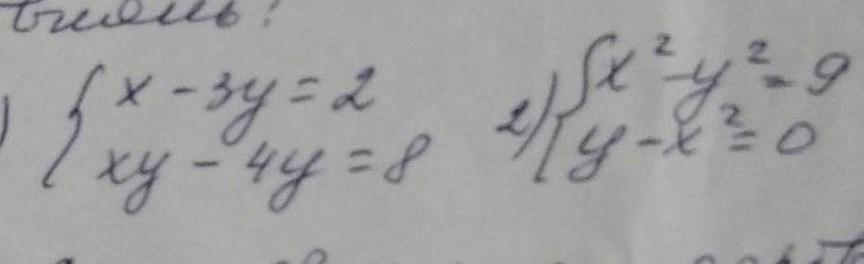 ) { x - 3y = 2
xy - 4y = 8
2) { x² - y² = 9
y - x² = 0